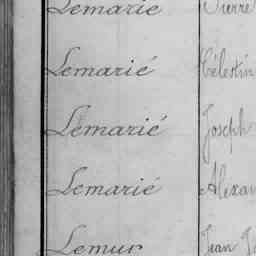 Lemarié Pierre
Lemarié Célestin
Lemarié Joseph
Lemarié
Lemur Jean